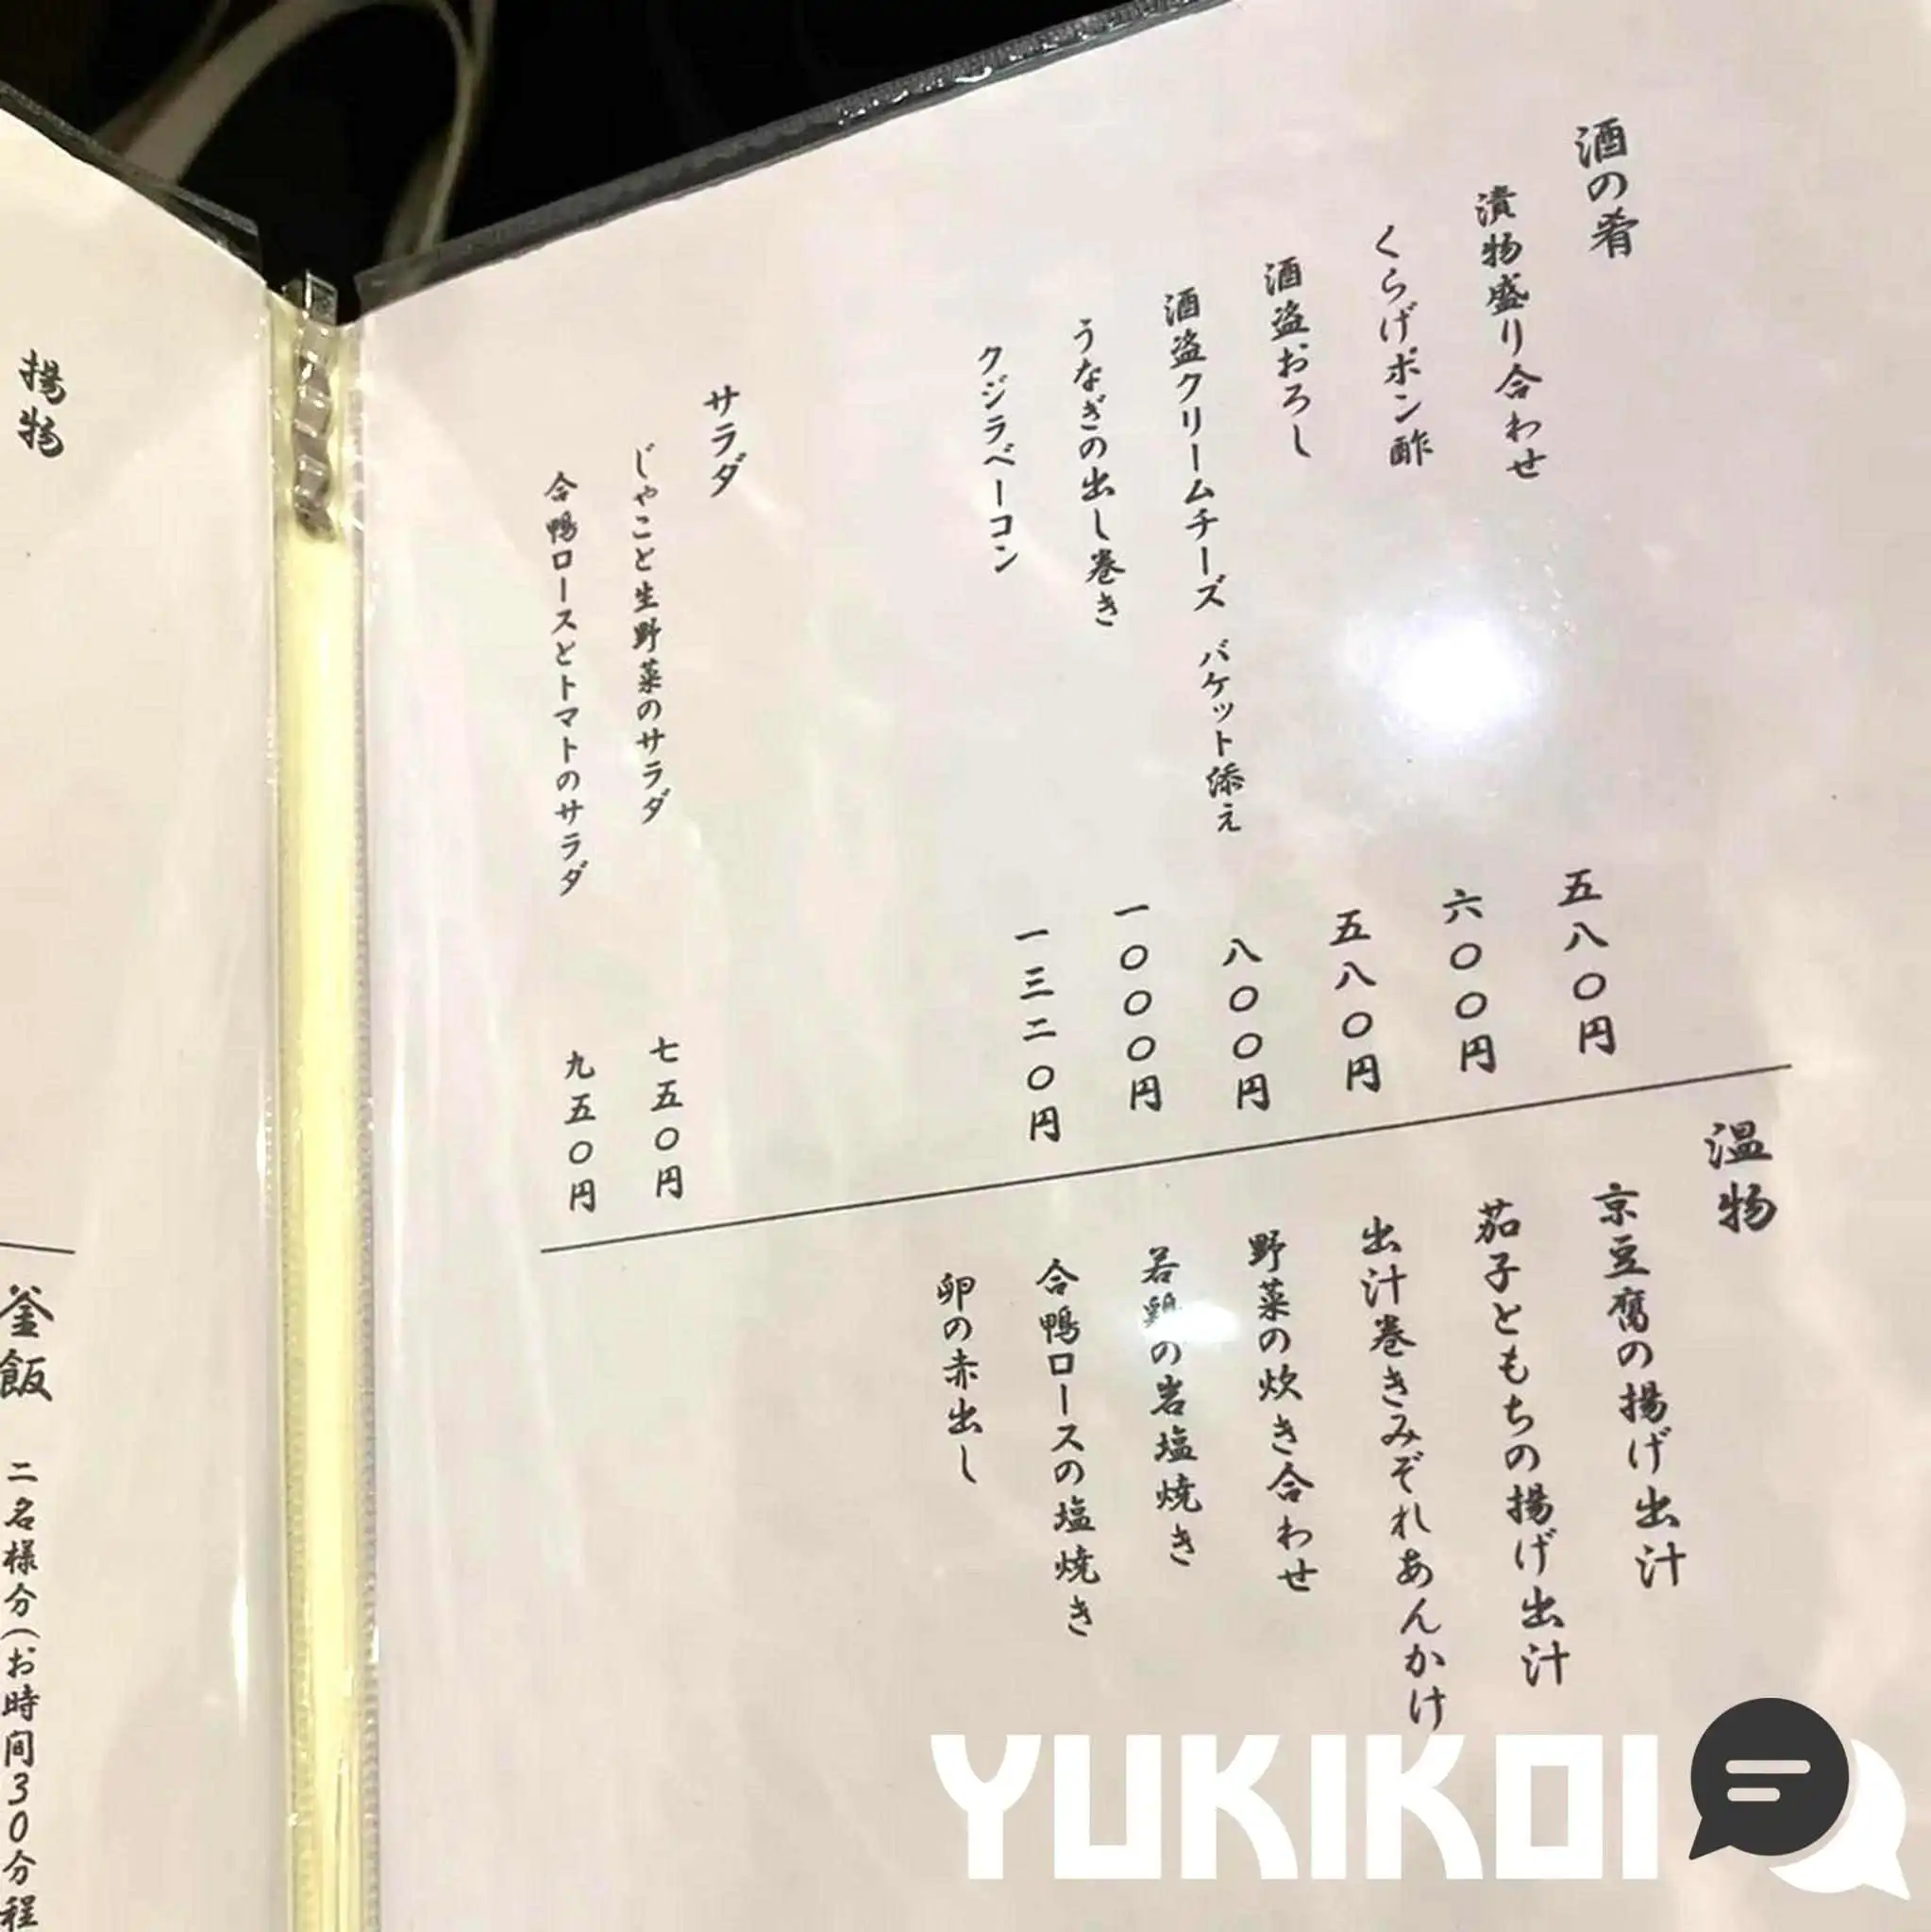 酒の肴
漬物盛り合わせ 五八〇円
くらげポン酢 六〇〇円
酒盗おろし 五八〇円
酒盗クリームチーズ バケット添え 八〇〇円
うなぎの出し巻き 一〇〇〇円
クジラベーコン 一三二〇円
サラダ
じゃこと生野菜のサラダ 七五〇円
合鴨ロースとトマトのサラダ 九五〇円
温物
京豆腐の揚げ出汁
茄子ともちの揚げ出汁
出汁巻きみぞれあんかけ
野菜の炊き合わせ
若鶏の岩塩焼き
合鴨ロースの塩焼き
卵の赤出し
揚物
釜飯 二名様分(お時間30分程
YUKIKOI